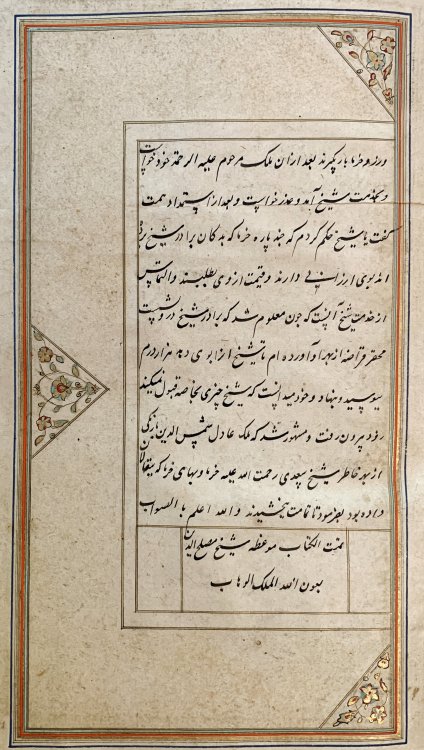 و زد و خرما باز گیرند بعد ازان ملک مرحوم علیه الرحمة خود خواست
و بخدمت شیخ آمد و عذر خواست و بعد از استمداد همت
گفت یا شیخ حکم کردم که چند پاره خرما که بدکان برادر شیخ برده
اند بوی ارزانی دارند و قیمت از وی نطلبند و التماس
از خدمت شیخ آنست که چون معلوم شد که برادر شیخ درویشست
محقر قراضه از بهر او آورده ام تا شیخ ارزا بوی دهد هزار درم
ببوسید و بنهاد و خود میدانست که شیخ چیزی بخاصه قبول نمیکند
زود بیرون رفت و مشهور شد که ملک عادل شمس الدین تازیکی
از بهر خاطر شیخ سعدی رحمت الله علیه خرما و بهای خرما که ببقالان
داده بود بفرمود تا تمامت بخشیدند والله اعلم بالصواب
تمت الکتاب موعظه شیخ مصلح الدین
بعون الله الملک الوهاب